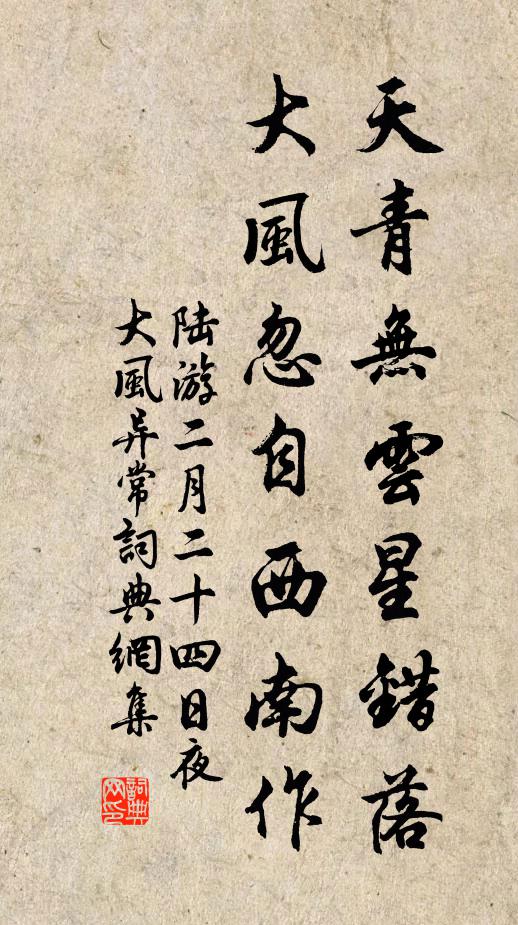 天青無雲星錯落
大風忽自西南作
陸游二月二十四日夜
大風异常詞典網集
詞典网印